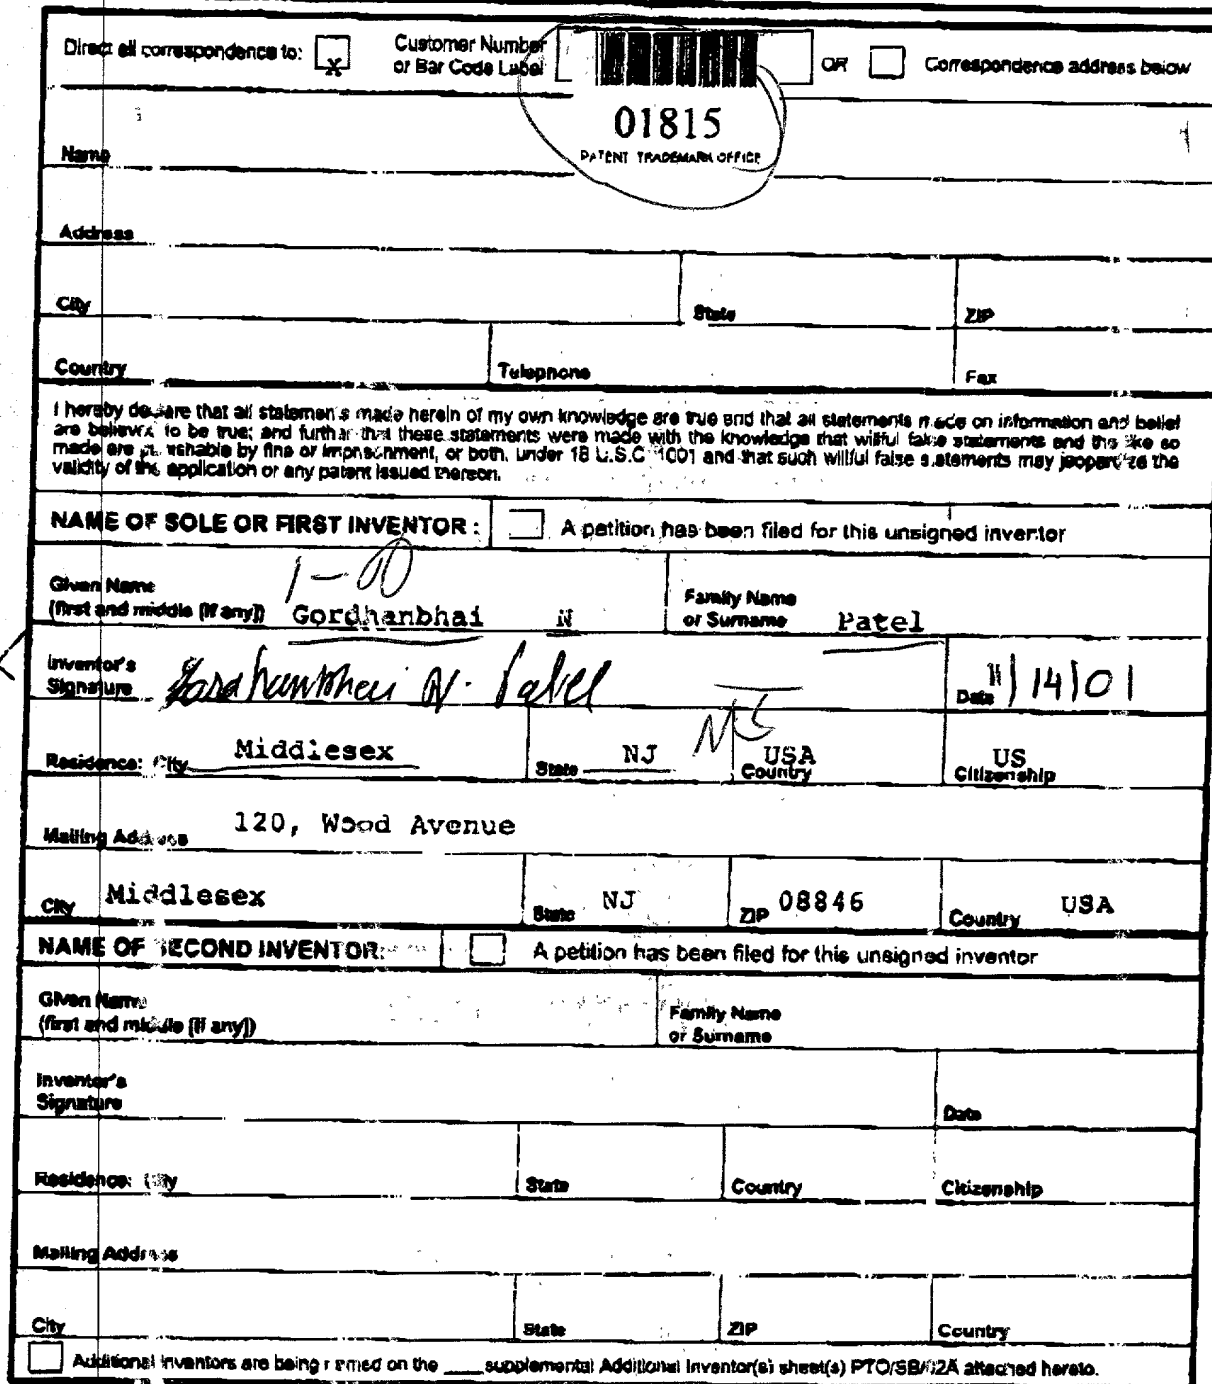 Direct all correspondence to: X Customer Number or Bar Code Label OR Correspondence address below
01815
PATENT TRADEMARK OFFICE
Name
Address
City State ZIP
Country Telephone Fax
I hereby declare that all statements made herein of my own knowledge are true and that all statements made on information and belief
are believed to be true; and further that these statements were made with the knowledge that willful false statements and the like so
made are punishable by fine or imprisonment, or both, under 18 U.S.C. 1001 and that such willful false statements may jeopardize the
validity of the application or any patent issued thereon.
NAME OF SOLE OR FIRST INVENTOR: A petition has been filed for this unsigned inventor
1-00
Given Name
(first and middle [if any]) Gordhanbhai N Family Name or Surname Patel
Inventor's Signature Gordhanbhai N. Patel Date 11/14/01
Residence: City Middlesex State NJ NJ USA Country US Citizenship
Mailing Address 120, Wood Avenue
City Middlesex State NJ ZIP 08846 Country USA
NAME OF SECOND INVENTOR: A petition has been filed for this unsigned inventor
Given Name
(first and middle [if any]) Family Name or Surname
Inventor's Signature Date
Residence: City State Country Citizenship
Mailing Address
City State ZIP Country
Additional inventors are being named on the ___ supplemental Additional Inventor(s) sheet(s) PTO/SB/02A attached hereto.